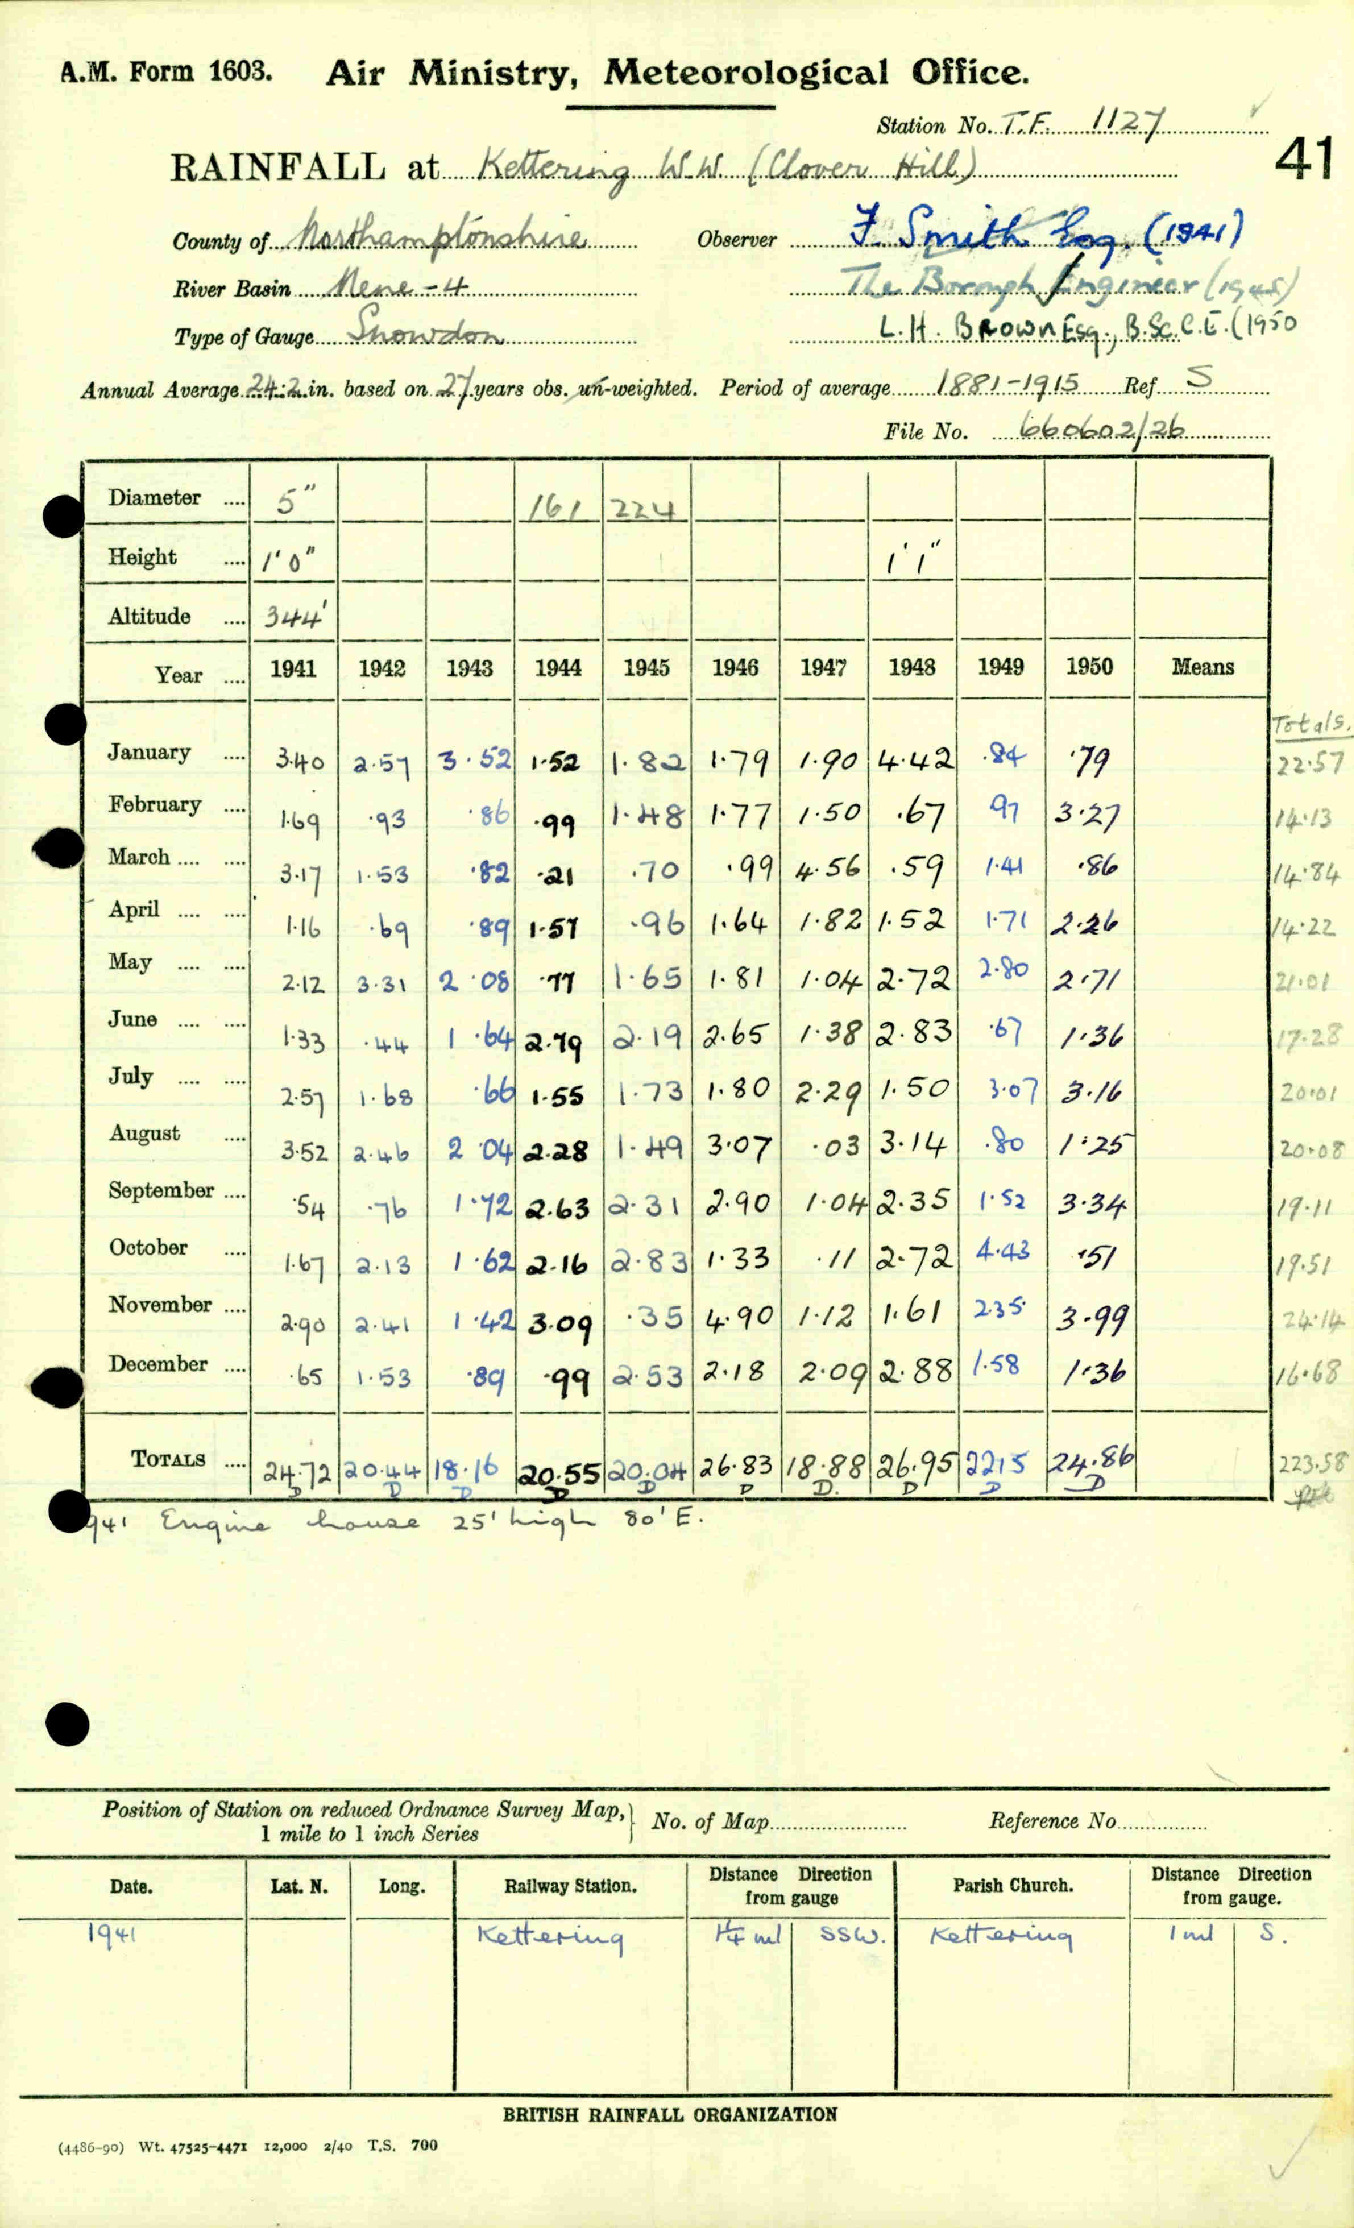 A.M. Form 1603. Air Ministry, Meteorological Office.
Station No. T.F. 1127
41
RAINFALL at Kettering W.W. (Clover Hill)
County of Northamptonshire Observer F. Smith Esq. (1941)
River Basin Nene - 4 The Borough Engineer (1945)
Type of Gauge Snowdon L.H. Brown Esq., B.Sc. C.E. (1950
Annual Average 24.2 in. based on 27 years obs. un-weighted. Period of average 1881-1915 Ref. S
File No. 660602/26
Diameter .... 5" 161 224
Height .... 1'0" 1'1"
Altitude .... 344'
Year .... 1941 1942 1943 1944 1945 1946 1947 1948 1949 1950 Means
Totals.
January .... 3.40 2.57 3.52 1.52 1.82 1.79 1.90 4.42 .84 .79 22.57
February .... 1.69 .93 .86 .99 1.48 1.77 1.50 .67 .97 3.27 14.13
March .... .... 3.17 1.53 .82 .21 .70 .99 4.56 .59 1.41 .86 14.84
April .... .... 1.16 .69 .89 1.57 .96 1.64 1.82 1.52 1.71 2.26 14.22
May .... .... 2.12 3.31 2.08 .77 1.65 1.81 1.04 2.72 2.80 2.71 21.01
June .... .... 1.33 .44 1.64 2.79 2.19 2.65 1.38 2.83 .67 1.36 17.28
July .... .... 2.57 1.68 .66 1.55 1.73 1.80 2.29 1.50 3.07 3.16 20.01
August .... 3.52 2.46 2.04 2.28 1.49 3.07 .03 3.14 .80 1.25 20.08
September .... .54 .76 1.72 2.63 2.31 2.90 1.04 2.35 1.52 3.34 19.11
October .... 1.67 2.13 1.62 2.16 2.83 1.33 .11 2.72 4.43 .51 19.51
November .... 2.90 2.41 1.42 3.09 .35 4.90 1.12 1.61 2.35 3.99 24.14
December .... .65 1.53 .89 .99 2.53 2.18 2.09 2.88 1.58 1.36 16.68
TOTALS .... 24.72 20.44 18.16 20.55 20.04 26.83 18.88 26.95 22.15 24.86 223.58
D D D D D D D. D D D
941 Engine house 25' high 80' E.
Position of Station on reduced Ordnance Survey Map, No. of Map Reference No
1 mile to 1 inch Series
Date. Lat. N. Long. Railway Station. Distance Direction from gauge Parish Church. Distance Direction from gauge.
1941 Kettering 1¼ ml SSW. Kettering 1 ml S.
BRITISH RAINFALL ORGANIZATION
(4486-90) Wt. 47525-4471 12,000 2/40 T.S. 700